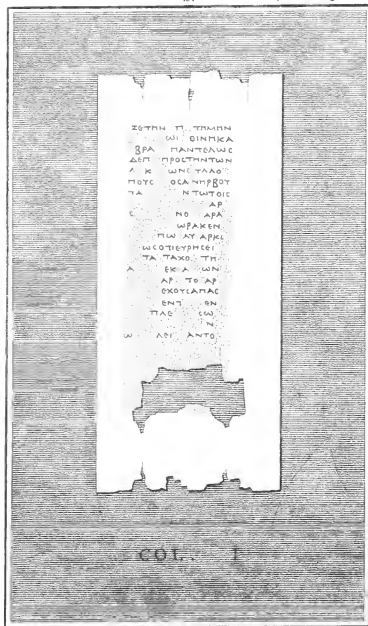 ΞΕΤΗΝ Π ΤΗΜΗΝ
ΩΙ ΘΙΝΗΚΑ
ΒΡΑ ΠΑΝΤΕΛΩC
ΔΕΠ ΠΡΟCΤΗΝΤΩΝ
Λ Κ ΩΝCΥΛΛΟ
ΠΟΥC ΟCΑΝΗΡΒΟΥ
ΤΑ ΝΤΩΤΟΙC
ΑΡ
C ΝΟ ΑΡΑ
ΩΡΑΚΕΝ
ΠΩ ΛΥ ΑΡΚC
ΩCΟΤΙΕΥΡΗCΕΙ
ΤΑ ΤΑΧΟ ΤΗ
Α ΕΚ Α ΩΝ
ΑΡ ΤΟ ΑΡ
ΕΧΟΥCΑΠΑC
ΕΝΤ ΕΝ
ΠΛΕ CΩ
Ν
Ω ΛΕΙ ΑΝΤΟ
COL. I.